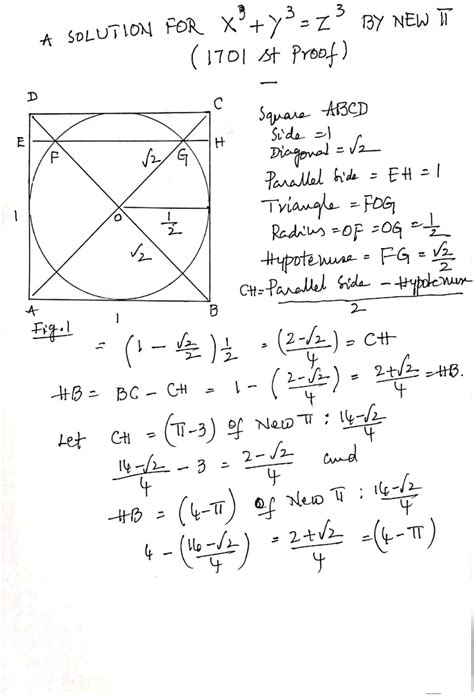 A SOLUTION FOR X³ + Y³ = Z³ BY NEW π
(1701 st Proof)
D
C
E
H
F
G
√2
O
1
1/2
√2
A
B
1
Fig.1
Square ABCD
Side = 1
Diagonal = √2
Parallel side = EH = 1
Triangle = FOG
Radius = OF = OG = 1/2
Hypotenuse = FG = √2/2
CH = (Parallel side - Hypotenuse)/2
= (1 - √2/2) 1/2 = (2-√2/4) = CH
HB = BC - CH = 1 - (2-√2/4) = 2+√2/4 = HB.
Let CH = (π-3) of New π : 14-√2/4
14-√2/4 - 3 = 2-√2/4 and
HB = (4-π) of New π : 14-√2/4
4 - (14-√2/4) = 2+√2/4 = (4-π)